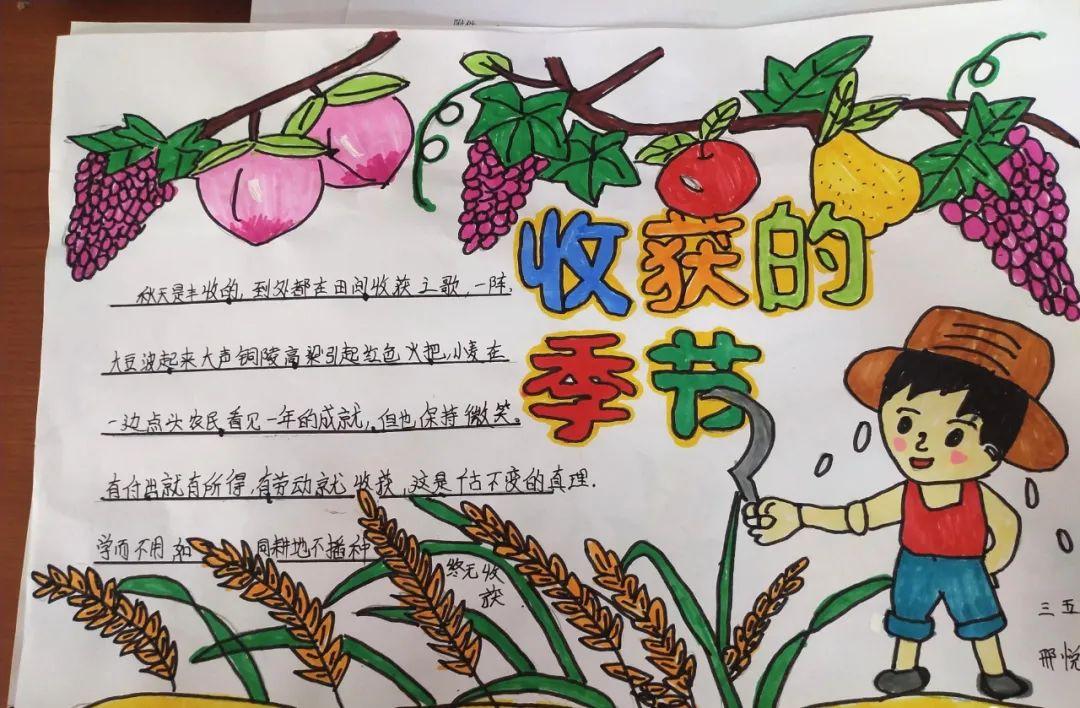 附件
收获的
季节
秋天是丰收的,到处都在田间收获之歌,一阵.
大豆波起来大声铜陵高粱引起红色火把,小麦在
一边点头农民看见一年的成就,但也保持微笑。
有付出就有所得,有劳动就收获,这是千古不变的真理.
学而不用如同耕地不播种
终无收
获.
三五
邢悦